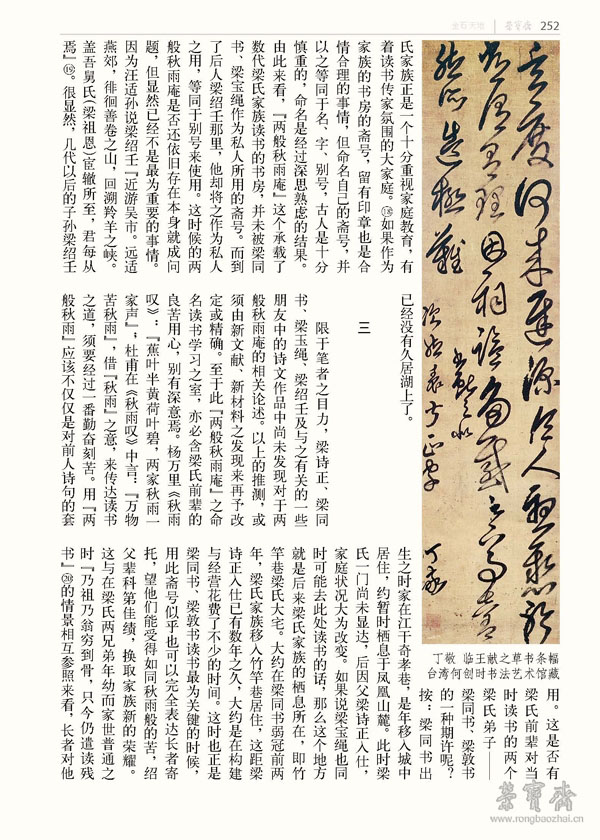 金石天地 荣宝斋 252
氏家族正是一个十分重视家庭教育，有
着读书传家氛围的大家庭。⑱如果作为
家族的书房的斋号，留有印章也是合
情合理的事情，但命名自己的斋号，并
以之等同于名、字、别号，古人是十分
慎重的，命名是经过深思熟虑的结果。
由此来看，『两般秋雨庵』这个承载了
数代梁氏家族读书的书房，并未被梁同
书、梁宝绳作为私人所用的斋号。而到
了后人梁绍壬那里，他却将之作为私人
之用，等同于别号来使用。这时候的两
般秋雨庵是否还依旧存在本身就成问
题，但显然已经不是最为重要的事情。
因为汪适孙说梁绍壬『近游吴市。远适
燕郊，徘徊善卷之山，回溯羚羊之峡。
盖吾舅氏(梁祖恩)宦辙所至，君每从
焉』⑲。很显然，几代以后的子孙梁绍壬
已经没有久居湖上了。
三
限于笔者之目力，梁诗正、梁同
书、梁玉绳、梁绍壬及与之有关的一些
朋友中的诗文作品中尚未发现对于两
般秋雨庵的相关论述。以上的推测，或
须由新文献、新材料之发现来再予改
定或精确。至于此『两般秋雨庵』之命
名读书学习之室，亦必含梁氏前辈的
良苦用心，别有深意焉。杨万里《秋雨
叹》：『蕉叶半黄荷叶碧，两家秋雨一
家声』；杜甫在《秋雨叹》中言：『万物
苦秋雨』，借『秋雨』之意，来传达读书
之道，须要经过一番勤奋刻苦。用『两
般秋雨』应该不仅仅是对前人诗句的套
丁敬 临王献之草书条幅
台湾何创时书法艺术馆藏
用。这是否有
梁氏前辈对当
时读书的两个
梁氏弟子——
梁同书、梁敦书
的一种期许呢？
按：梁同书出
生之时家在江干奇孝巷，是年移入城中
居住，约暂时栖息于凤凰山麓。此时梁
氏一门尚未显达，后因父梁诗正入仕，
家庭状况大为改变。如果说梁宝绳也同
时可能去此处读书的话，那么这个地方
就是后来梁氏家族的栖息所在，即竹
竿巷梁氏大宅。大约在梁同书弱冠前两
年，梁氏家族移入竹竿巷居住，这距梁
诗正入仕已有数年之久，大约是在构建
与经营花费了不少的时间。这时也正是
梁同书、梁敦书读书最为关键的时候，
用此斋号似乎也可以完全表达长者寄
托，望他们能受得如同秋雨般的苦，绍
父辈科第佳绩，换取家族新的荣耀。
这与在梁氏两兄弟年幼而家世普通之
时『乃祖乃翁穷到骨，只今仍遣读残
书』⑳的情景相互参照来看，长者对他
荣宝斋
www.rongbaozhai.cn